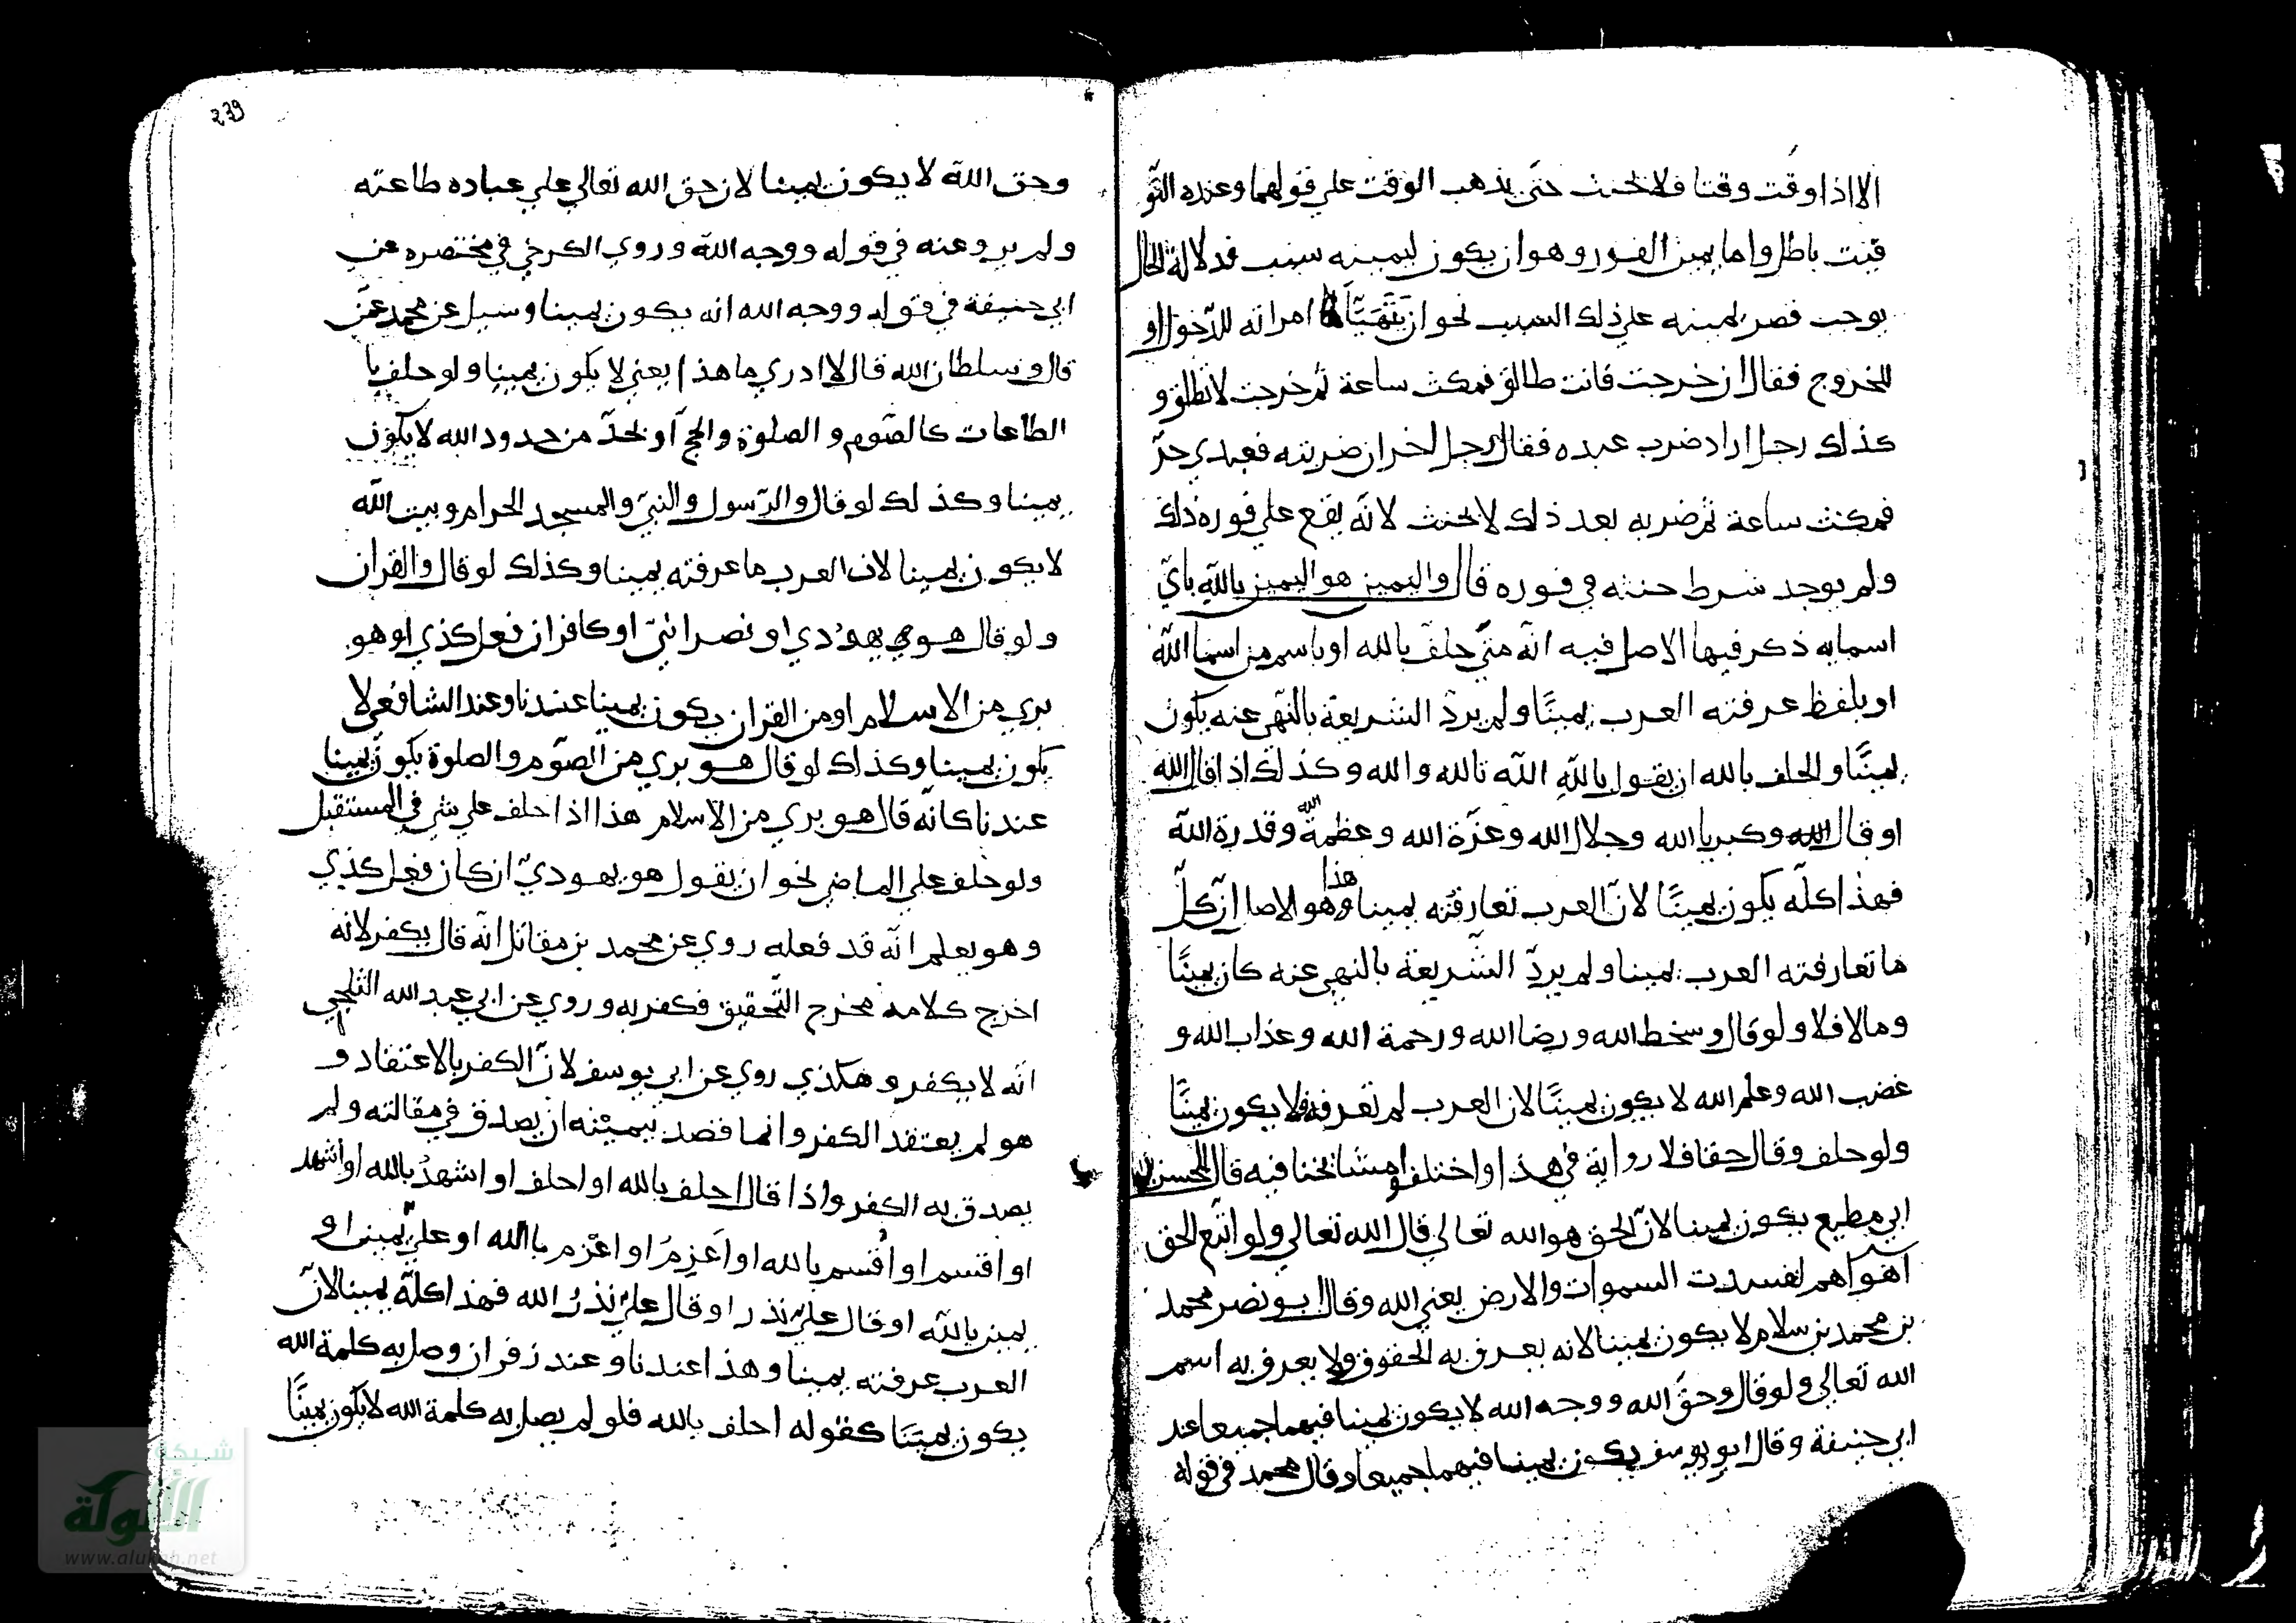 الا اذا وقت وقتا فلا يحنث حتى يذهب الوقت على قولهما وعنده التو
قيت باطل واما يمين الفور وهو ان يكون ليمينه سبب فدلالة الحال
يوجب قصر يمينه على ذلك السبب نحو ان تتهيّأ امراته للدخول او
للخروج فقال ان خرجت فانت طالق فمكث ساعة ثم خرجت لا تطلق و
كذلك رجل اراد ضرب عبده فقال رجل اخر ان ضربته فعبدي حرّ
فمكث ساعة ثم ضربه بعد ذلك لا يحنث لانّه يقع على فوره ذلك
ولم يوجد شرط حنثه في فوره قال واليمين هو اليمين بالله بايّ
اسمايه ذكر فيها الاصل فيه انّه متى حلف بالله او باسم من اسما الله
او بلفظ عرفته العرب يمينًا ولم يردّ الشريعة بالنّهي عنه يكون
يمينًا والحلف بالله ان يقول بالله الله تالله والله وكذلك اذا قال الله
او قال الله وكبريا الله وجلال الله وعزّة الله وعظمة الله وقدرة الله
فهذا كلّه يكون يمينًا لانّ العرب تعارفته يمينا وهذا هو الاصل انّ كلّ
ما تعارفته العرب يمينا ولم يردّ الشّريعة بالنهي عنه كان يمينًا
وما لا فلا ولو قال وسخط الله ورضا الله ورحمة الله وعذاب الله و
غضب الله وعلم الله لا يكون يمينًا لان العرب لم تعرفه فلا يكون يمينًا
ولو حلف وقال حقا فلا رواية في هذا واختلفوا مشايخنا فيه قال الحسن بن
ابي مطيع يكون يمينا لانّ الحق هو الله تعالى قال الله تعالى ولو اتّبع الحق
اهواهم لفسدت السموات والارض يعني الله وقال ابو نصر محمد
بن محمد بن سلام لا يكون يمينا لانه يعرف به الحقوق ولا يعرف به اسم
الله تعالى ولو قال وحقّ الله ووجه الله لا يكون يمينا فيهما جميعا عند
ابي حنيفة وقال ابو يوسف يكون يمينا فيهما جميعا وقال محمد في قوله
239
وحق الله لا يكون يمينا لان حق الله تعالى على عباده طاعته
ولم يرو عنه في قوله ووجه الله وروي الكرخي في مختصره عن
ابي حنيفة في قوله ووجه الله انه يكون يمينا وسيل عن محمد عمّن
قال وسلطان الله قال لا ادري ما هذا يعني لا يكون يمينا ولو حلف با
الطاعات كالصّوم والصلوة والحج او بحدّ من حدود الله لا يكون
يمينا وكذلك لو قال والرّسول والنبيّ والمسجد الحرام وبيت الله
لا يكون يمينا لان العرب ما عرفته يمينا وكذلك لو قال والقران
ولو قال هو يهودي او نصرانيّ او كافر ان فعل كذي او هو
بري من الاسلام او من القران يكون يمينا عندنا وعند الشافعي لا
يكون يمينا وكذلك لو قال هو بري من الصّوم والصلوة يكون يمينا
عندنا كانّه قال هو بري من الاسلام هذا اذا حلف على شي في المستقبل
ولو حلف على الماضي نحو ان يقول هو يهوديّ ان كان فعل كذي
وهو يعلم انّه قد فعله روي عن محمد بن مقاتل انّه قال يكفر لانه
اخرج كلامه مخرج التّحقيق فكفر به وروي عن ابي عبد الله الثلجي
انّه لا يكفر وهكذي روي عن ابي يوسف لانّ الكفر بالاعتقاد و
هو لم يعتقد الكفر وانما قصد بيمينه ان يصدق في مقالته ولم
يصدق به الكفر واذا قال احلف بالله او احلف او اشهد بالله او اشهد
او اقسم او اُقسم بالله او اَعزِمُ او اعزم بالله او عليّ يمين او
يمين بالله او قال عليّ نذر او قال عليّ نذرُ الله فهذا كلّه يمينا لانّ
العرب عرفته يمينا وهذا عندنا وعند زفر ان وصل به كلمة الله
يكون يمينًا كقوله احلف بالله فلو لم يصل به كلمة الله لا يكون يمينًا
شبكة
الألوكة
www.alukah.net